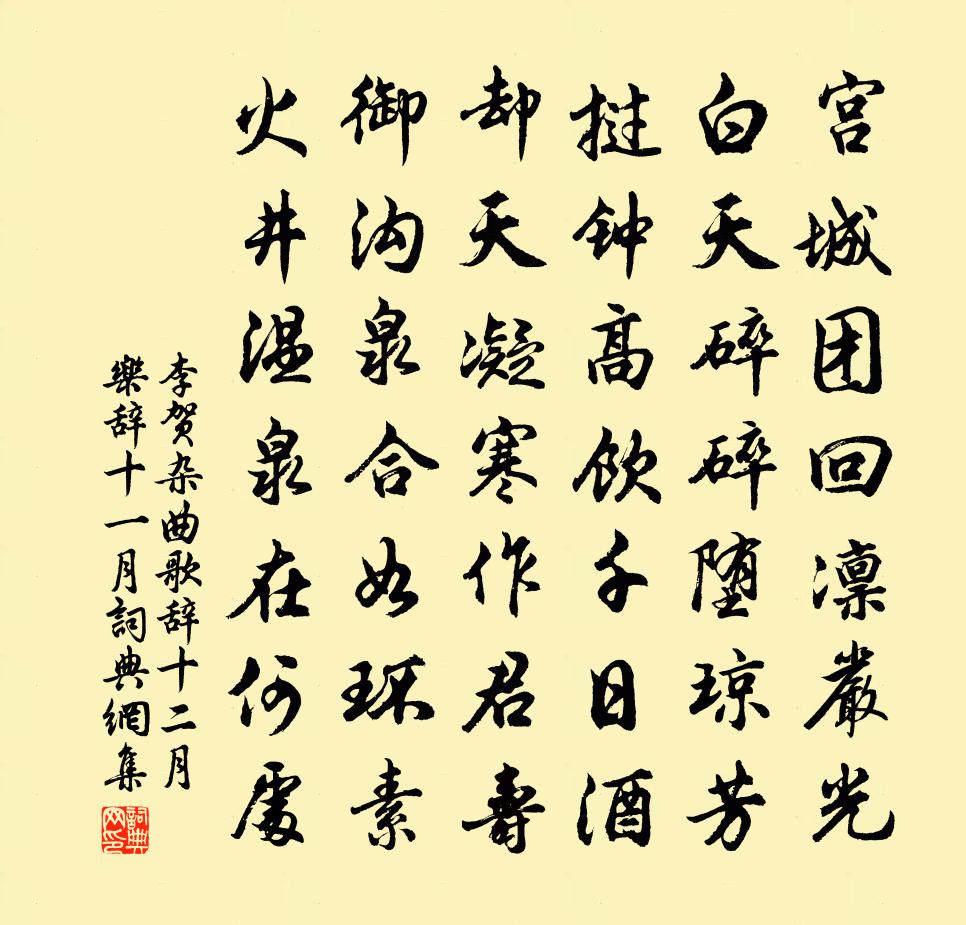 宫城团回凛嚴光
白天碎碎堕琼芳
挝钟高饮千日酒
却天凝寒作君壽
御沟泉合如环素
火井温泉在何處
李贺杂曲歌辞十二月
樂辞十一月詞典網集
詞典网印